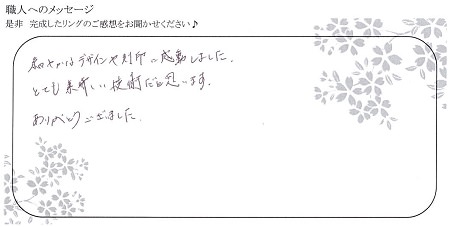 職人へのメッセージ
是非 完成したリングのご感想をお聞かせください♪
細やかなデザインや刻印に感動しました。
とても素晴しい技術だと思います。
ありがとうございました。